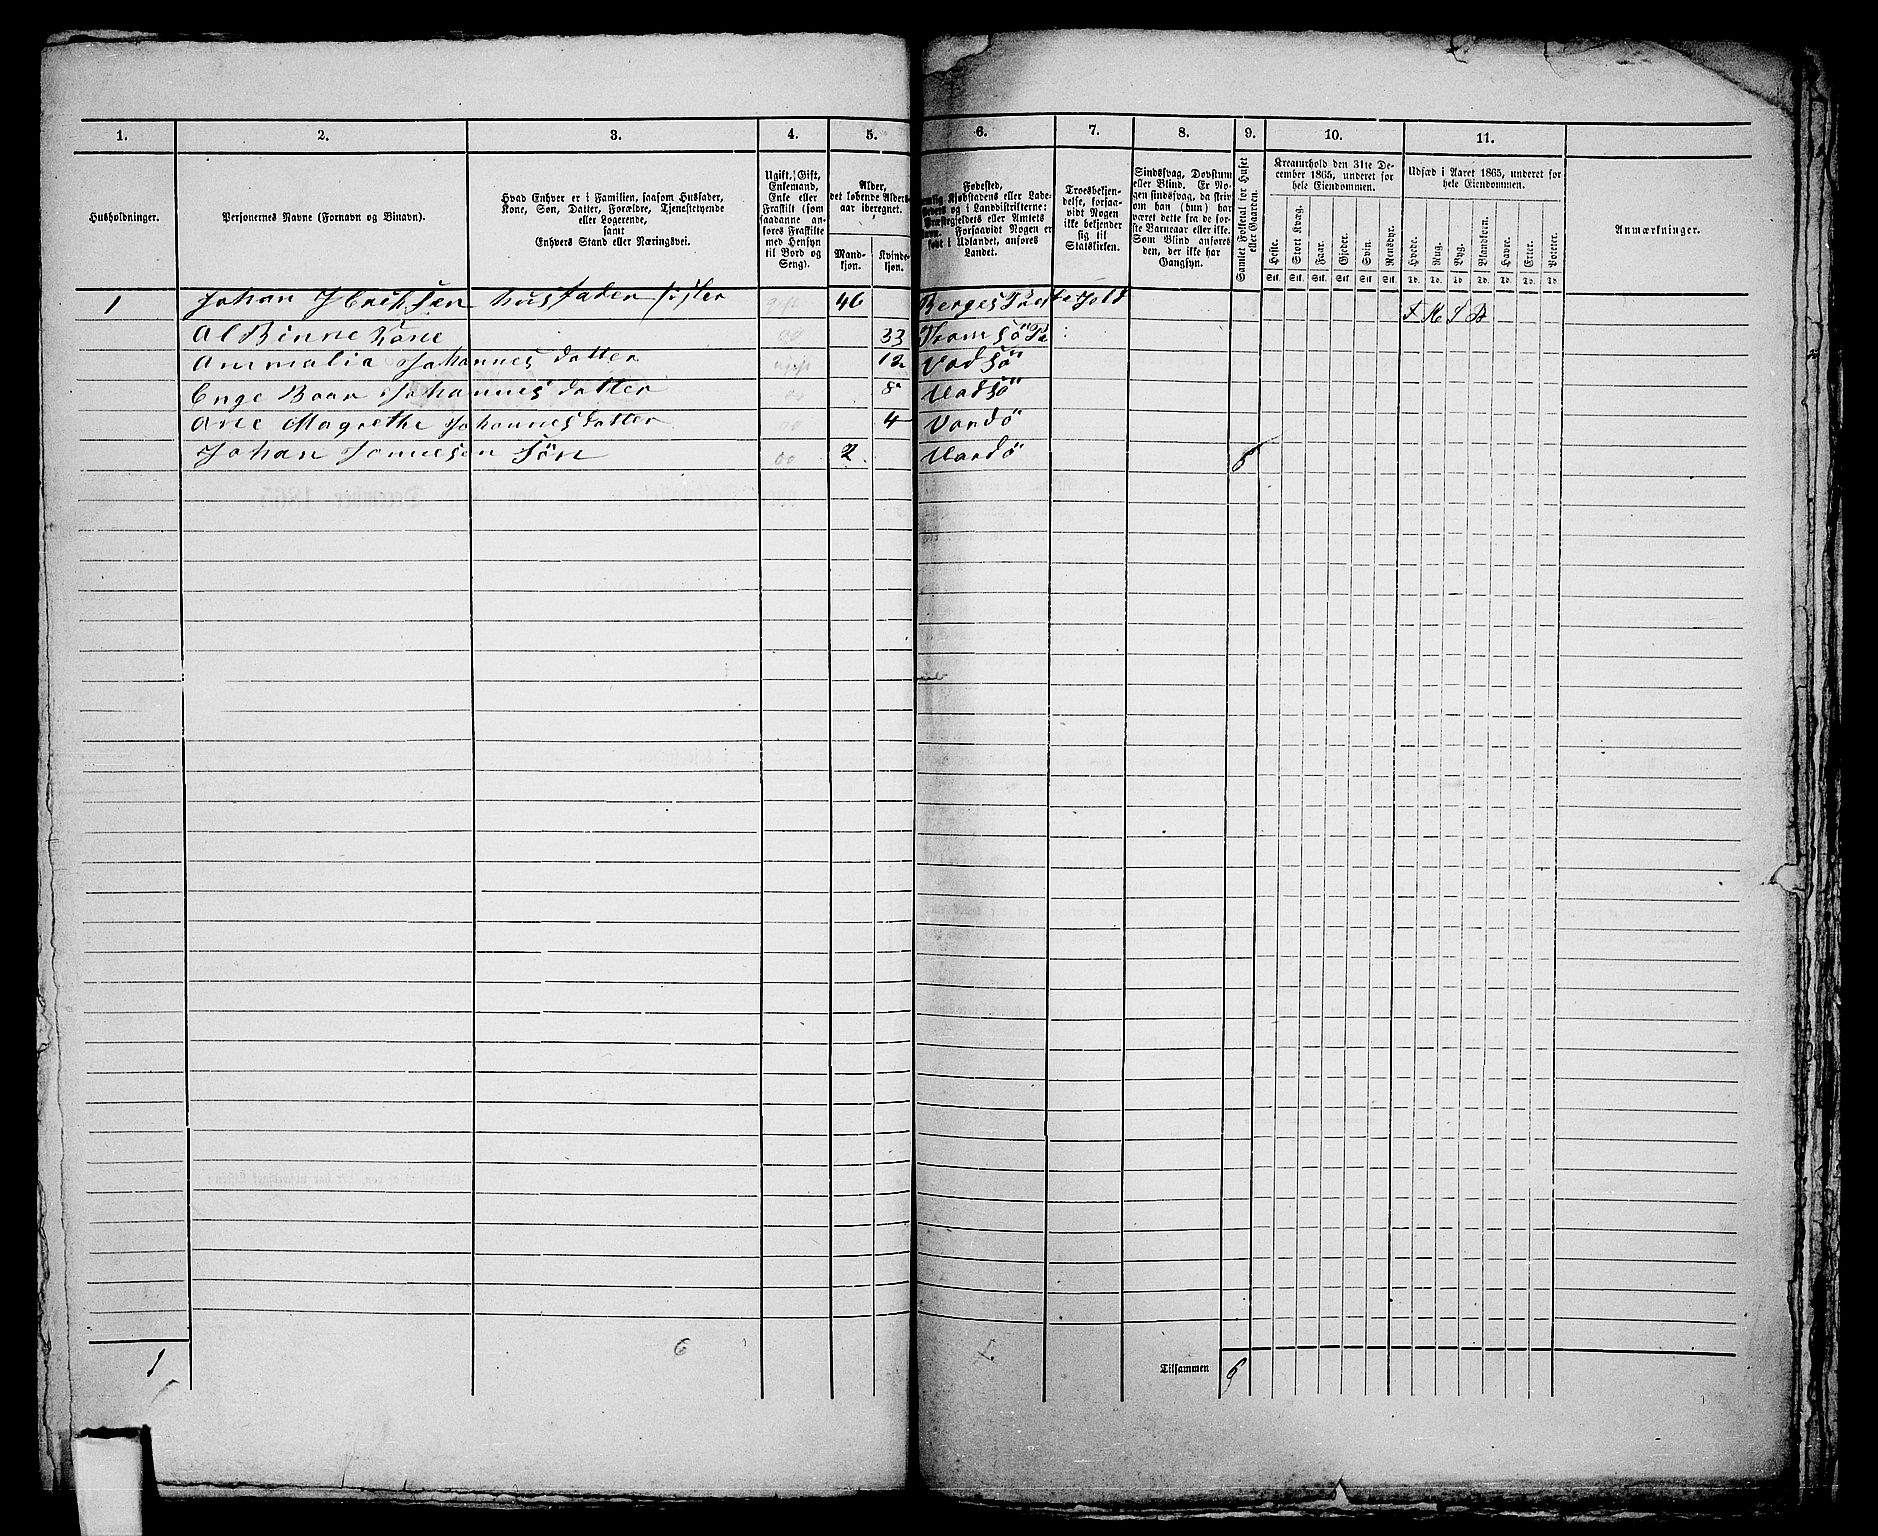 1. 2. 3. 4. 5. 6. 7. 8. 9. 10. 11.
Husholdninger.
Personernes Navne (Fornavn og Binavn).
Hvad Enhver er i Familien, saasom Husfader,
Kone, Søn, Datter, Forældre, Tjenstetyende
eller Logerende,
samt
Enhvers Stand eller Næringsvei.
Ugift, Gift,
Enkemand,
Enke eller
Fraskilt (som
saadanne an-
føres Fraskilte
med Hensyn
til Bord og
Seng).
Alder,
det løbende Alders-
aar iberegnet.
Mand-
kjøn.
Kvinde-
kjøn.
Fødested,
Kjøbstadens eller Lade-
og i Landdistrikterne:
eller Amtets
Forsaavidt Nogen er
født i Udlandet, anføres
Landet.
Troesbekjen-
delse, forsaa-
vidt Nogen
ikke bekjender
sig til
Statskirken.
Sindssvag, Døvstum
eller Blind. Er No-
gen sindssvag, da skriv
om han (hun) har
været dette fra de før-
ste Barneaar eller ikke.
Som Blind anføres
den, der ikke har
Gangsyn.
Samlet Folketal for Huset
eller Gaarden.
Kreaturhold den 31te De-
cember 1865, underet for
hele Eiendommen.
Heste. Stort Kvæg. Faar. Gjeder. Svin. Rensdyr.
Stk. Stk. Stk. Stk. Stk. Stk.
Udsæd i Aaret 1865, underet for
hele Eiendommen.
Hvede. Rug. Byg. Blandkorn. Havre. Erter. Poteter.
Td. Td. Td. Td. Td. Td. Td.
Anmærkninger.
1 Johan Hendriksen husfader fisker gift 46
Al Binne Kone 33
Ammalia Johannes datter ugift 12 Vadsö
Enge Baar Johannes datter 8 Vadsö
Ane Magrethe Johannes datter 4 Vardö
Johan Søn 2 Vardö 6
1 6 Tilsammen 6